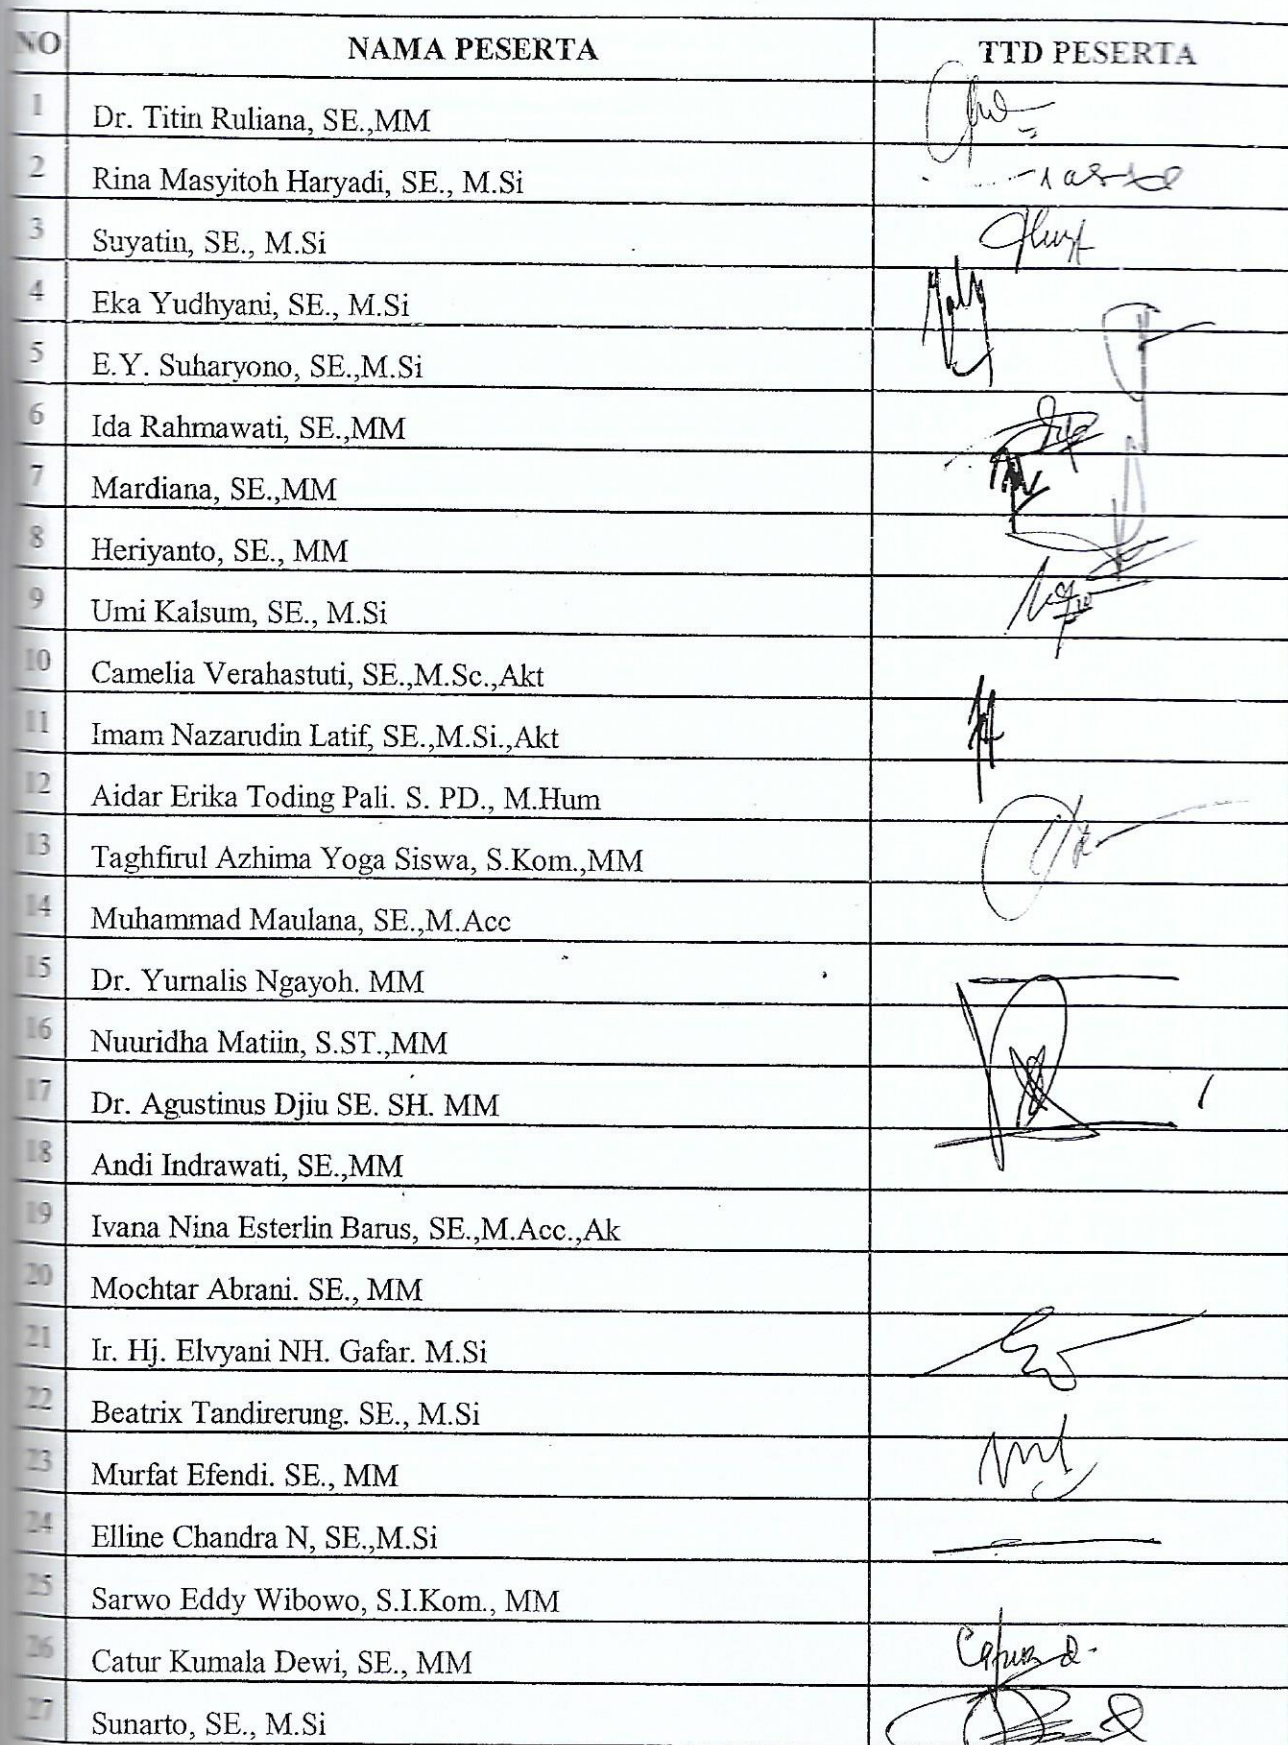 NO NAMA PESERTA TTD PESERTA
1 Dr. Titin Ruliana, SE.,MM
2 Rina Masyitoh Haryadi, SE., M.Si
3 Suyatin, SE., M.Si
4 Eka Yudhyani, SE., M.Si
5 E.Y. Suharyono, SE.,M.Si
6 Ida Rahmawati, SE.,MM
7 Mardiana, SE.,MM
8 Heriyanto, SE., MM
9 Umi Kalsum, SE., M.Si
10 Camelia Verahastuti, SE.,M.Sc.,Akt
11 Imam Nazarudin Latif, SE.,M.Si.,Akt
12 Aidar Erika Toding Pali. S. PD., M.Hum
13 Taghfirul Azhima Yoga Siswa, S.Kom.,MM
14 Muhammad Maulana, SE.,M.Acc
15 Dr. Yurnalis Ngayoh. MM
16 Nuuridha Matiin, S.ST.,MM
17 Dr. Agustinus Djiu SE. SH. MM
18 Andi Indrawati, SE.,MM
19 Ivana Nina Esterlin Barus, SE.,M.Acc.,Ak
20 Mochtar Abrani. SE., MM
21 Ir. Hj. Elvyani NH. Gafar. M.Si
22 Beatrix Tandirerung. SE., M.Si
23 Murfat Efendi. SE., MM
24 Elline Chandra N, SE.,M.Si
25 Sarwo Eddy Wibowo, S.I.Kom., MM
26 Catur Kumala Dewi, SE., MM
27 Sunarto, SE., M.Si